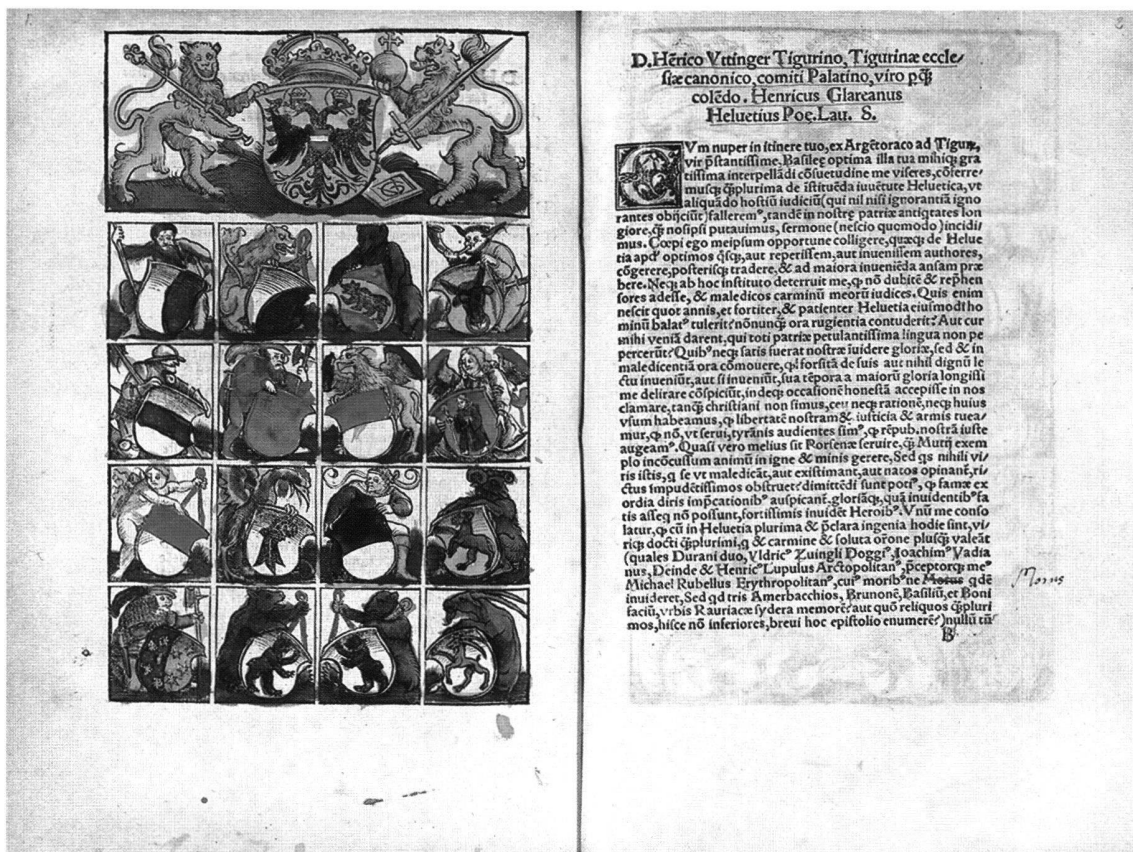 D. Hēͬrico Vttinger Tigurino, Tigurinæ eccle⸗
siæ canonico, comiti Palatino, viro ꝑq̄ꝫ
colēdo. Henricus Glareanus
Heluetius Poę. Lau. S.
Vm nuper in itinere tuo, ex Argētoraco ad Tigurꝫ,
vir p̄stantissime, Basileę optima illa tua mihiq; gra
tissima interpellādi cōsuetudine me viseres, cōferre⸗
musq; q̄ꝫplurima de īstituēda iuuētute Heluetica, vt
aliquādo hostiū iudiciū (qui nil nisi ignorantiā igno
rantes obijciūt) fallerem⁹, tandē in nostrę patriæ antiq̄tates lon
giore, q̄ꝫ nosipsi putauimus, sermone (nescio quomodo) incidi⸗
mus. Cœpi ego meipsum opportune colligere, quæq; de Helue
tia apd' optimos q̄sq;, aut reperissem, aut inuenissem authores,
cōgerere, posterisq; tradere, & ad maiora inueniēda ansam præ
bere. Neq; ab hoc instituto deterruit me, ꝙ nō dubitē & rep̄hen
sores adesse, & maledicos carminū meorū iudices. Quis enim
nescit quot annis, et fortiter, & patienter Heluetia eiusmodi ho
minū balat⁹ tulerit? nōnunq̄ꝫ ora rugientia contuderit? Aut cur
mihi veniā darent, qui toti patriæ petulantissima lingua non pe
percerūt? Quib⁹ neq; satis fuerat nostræ īuidere gloriæ, sed & in
maledicentiā ora cōmouere, ꝙ forsitā de suis aut nihil dignū le
ctu inueniūt, aut si inueniūt, sua tēpora a maiorū gloria longissi
me delirare cōspiciūt, indeq; occasionē honestā accepisse in nos
clamare, tanq̄ꝫ christiani non simus, ceu neq; rationē, neq; huius
vsum habeamus, ꝙ libertatē nostram & iusticia & armis tuea⸗
mur, ꝙ nō, vt serui, tyrānis audientes sim⁹, ꝙ rēpub. nostrā iuste
augeam⁹. Quasi vero melius sit Porsenæ seruire, q̄ꝫ Mutij exem
plo incōcussum animū in igne & minis gerere, Sed q̄s nihili vi
ris istis, q̄ se vt maledicāt, aut existimant, aut natos opinant̄, ri⸗
ctus impudētissimos obstruet? dimittēdi sunt poti⁹, ꝙ famæ ex
ordia diris imp̄cationib⁹ auspicant̄, gloriāq;, quā inuidentib⁹ fa
tis asseq̄ nō possunt, fortissimis inuidēt Heroib⁹. Vnū me conso
latur, ꝙ cū in Heluetia plurima & p̄clara ingenia hodie sint, vi⸗
riq; docti q̄ꝫplurimi, q̄ & carmine & soluta or̄one plusq̄ꝫ valeāt
(quales Durani duo, Vldric⁹ Zuingli Doggi⁹, Joachim⁹ Vadia
nus, Deinde & Henric⁹ Lupulus Arctopolitan⁹, p̄ceptorq; me⁹
Michael Rubellus Erythropolitan⁹, cui⁹ morib⁹ ne Motus q̄dē Morus
inuideret, Sed qd tris Amerbacchios, Brunonē, Basiliū, et Boni
faciū, vrbis Rauriacæ sydera memorē? aut quō reliquos q̄ꝫpluri
mos, hisce nō inferiores, breui hoc epistolio enumerē?) nullū tū
B